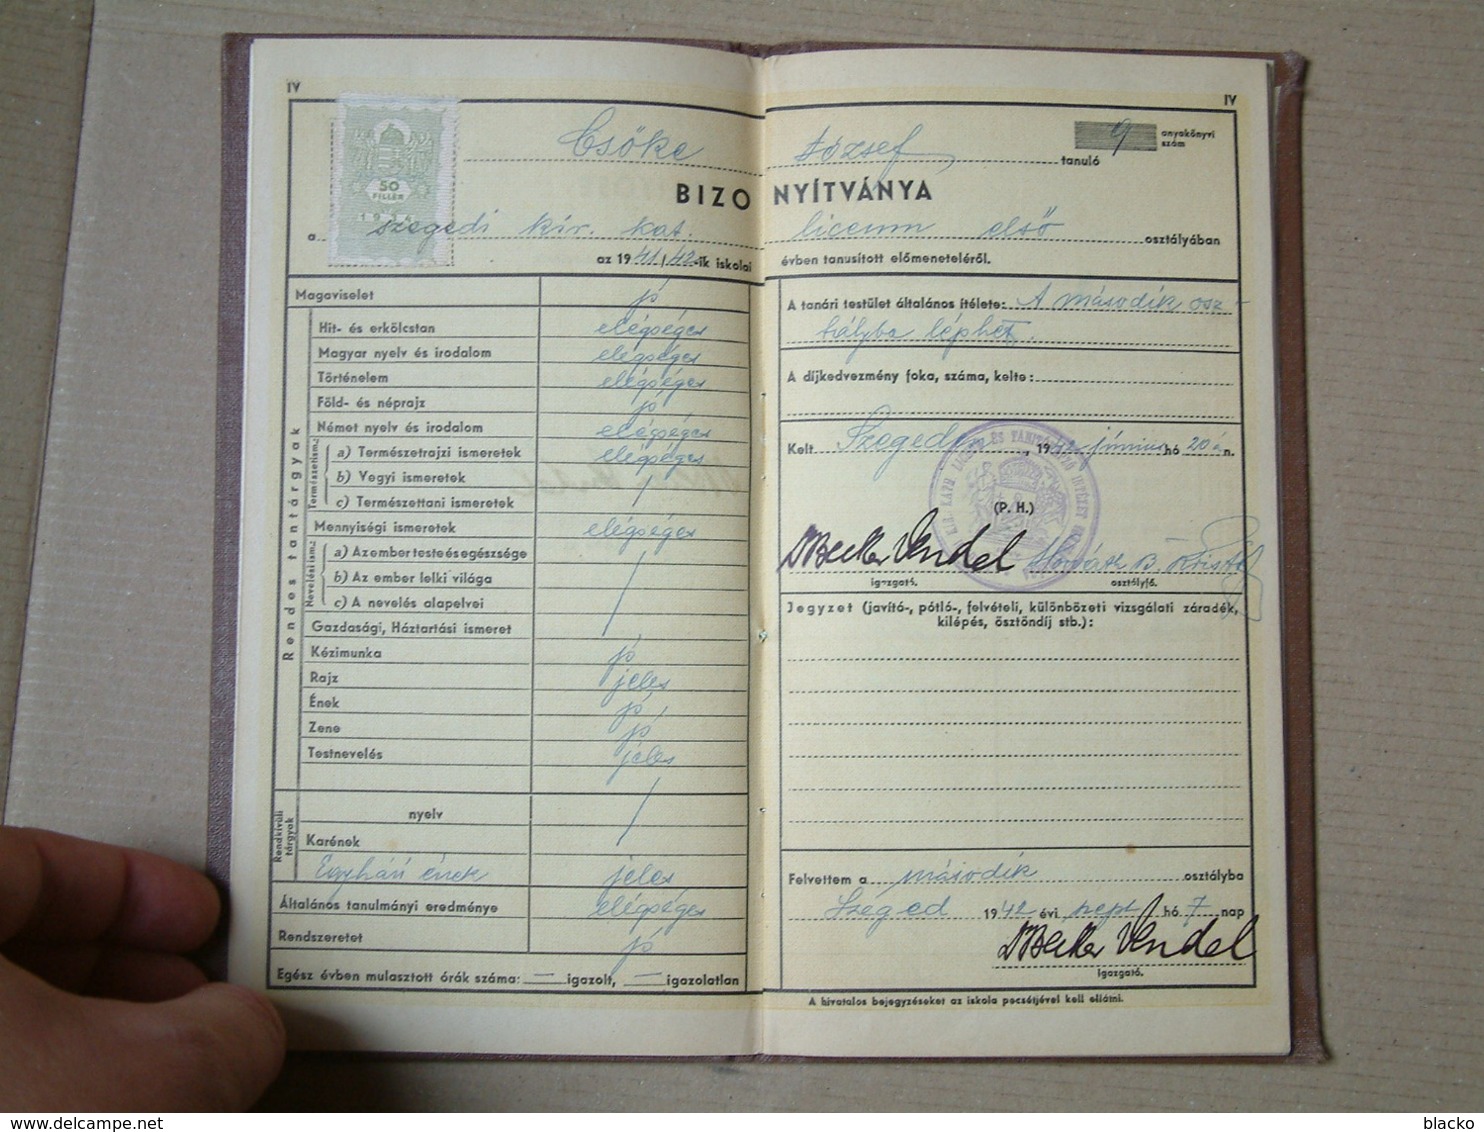 IV
50
FILLÉR
1934
Csőke
BIZO
a szegedi kir. kat.
az 1941/42-ik iskolai
Magaviselet jó
Rendes tantárgyak
Hit- és erkölcstan elégséges
Magyar nyelv és irodalom elégséges
Történelem elégséges
Föld- és néprajz jó
Német nyelv és irodalom elégséges
Természetism.
a) Természetrajzi ismeretek elégséges
b) Vegyi ismeretek
c) Természettani ismeretek
Mennyiségi ismeretek elégséges
Nevelési ism.
a) Az ember teste és egészsége
b) Az ember lelki világa
c) A nevelés alapelvei
Gazdasági, Háztartási ismeret
Kézimunka jó
Rajz jeles
Ének jó
Zene jó
Testnevelés jeles
Rendkívüli tárgyak
nyelv
Karének
Egyházi ének jeles
Általános tanulmányi eredménye elégséges
Rendszeretet jó
Egész évben mulasztott órák száma: — igazolt, — igazolatlan
IV
József tanuló
9 anyakönyvi szám
NYÍTVÁNYA
liceum első osztályában
évben tanusított előmeneteléről.
A tanári testület általános ítélete: A második osz-
tályba léphet.
A díjkedvezmény foka, száma, kelte:
Kelt Szeged, 1942 június hó 20 án.
(P. H.)
Dr Becker Vendel
igazgató. osztályfő.
Jegyzet (javító-, pótló-, felvételi, különbözeti vizsgálati záradék,
kilépés, ösztöndíj stb.):
Felvettem a második osztályba
Szeged 1942 évi szept hó 7 nap
Dr Becker Vendel
igazgató.
A hivatalos bejegyzéseket az iskola pecsétjével kell ellátni.
www.delcampe.net
blacko